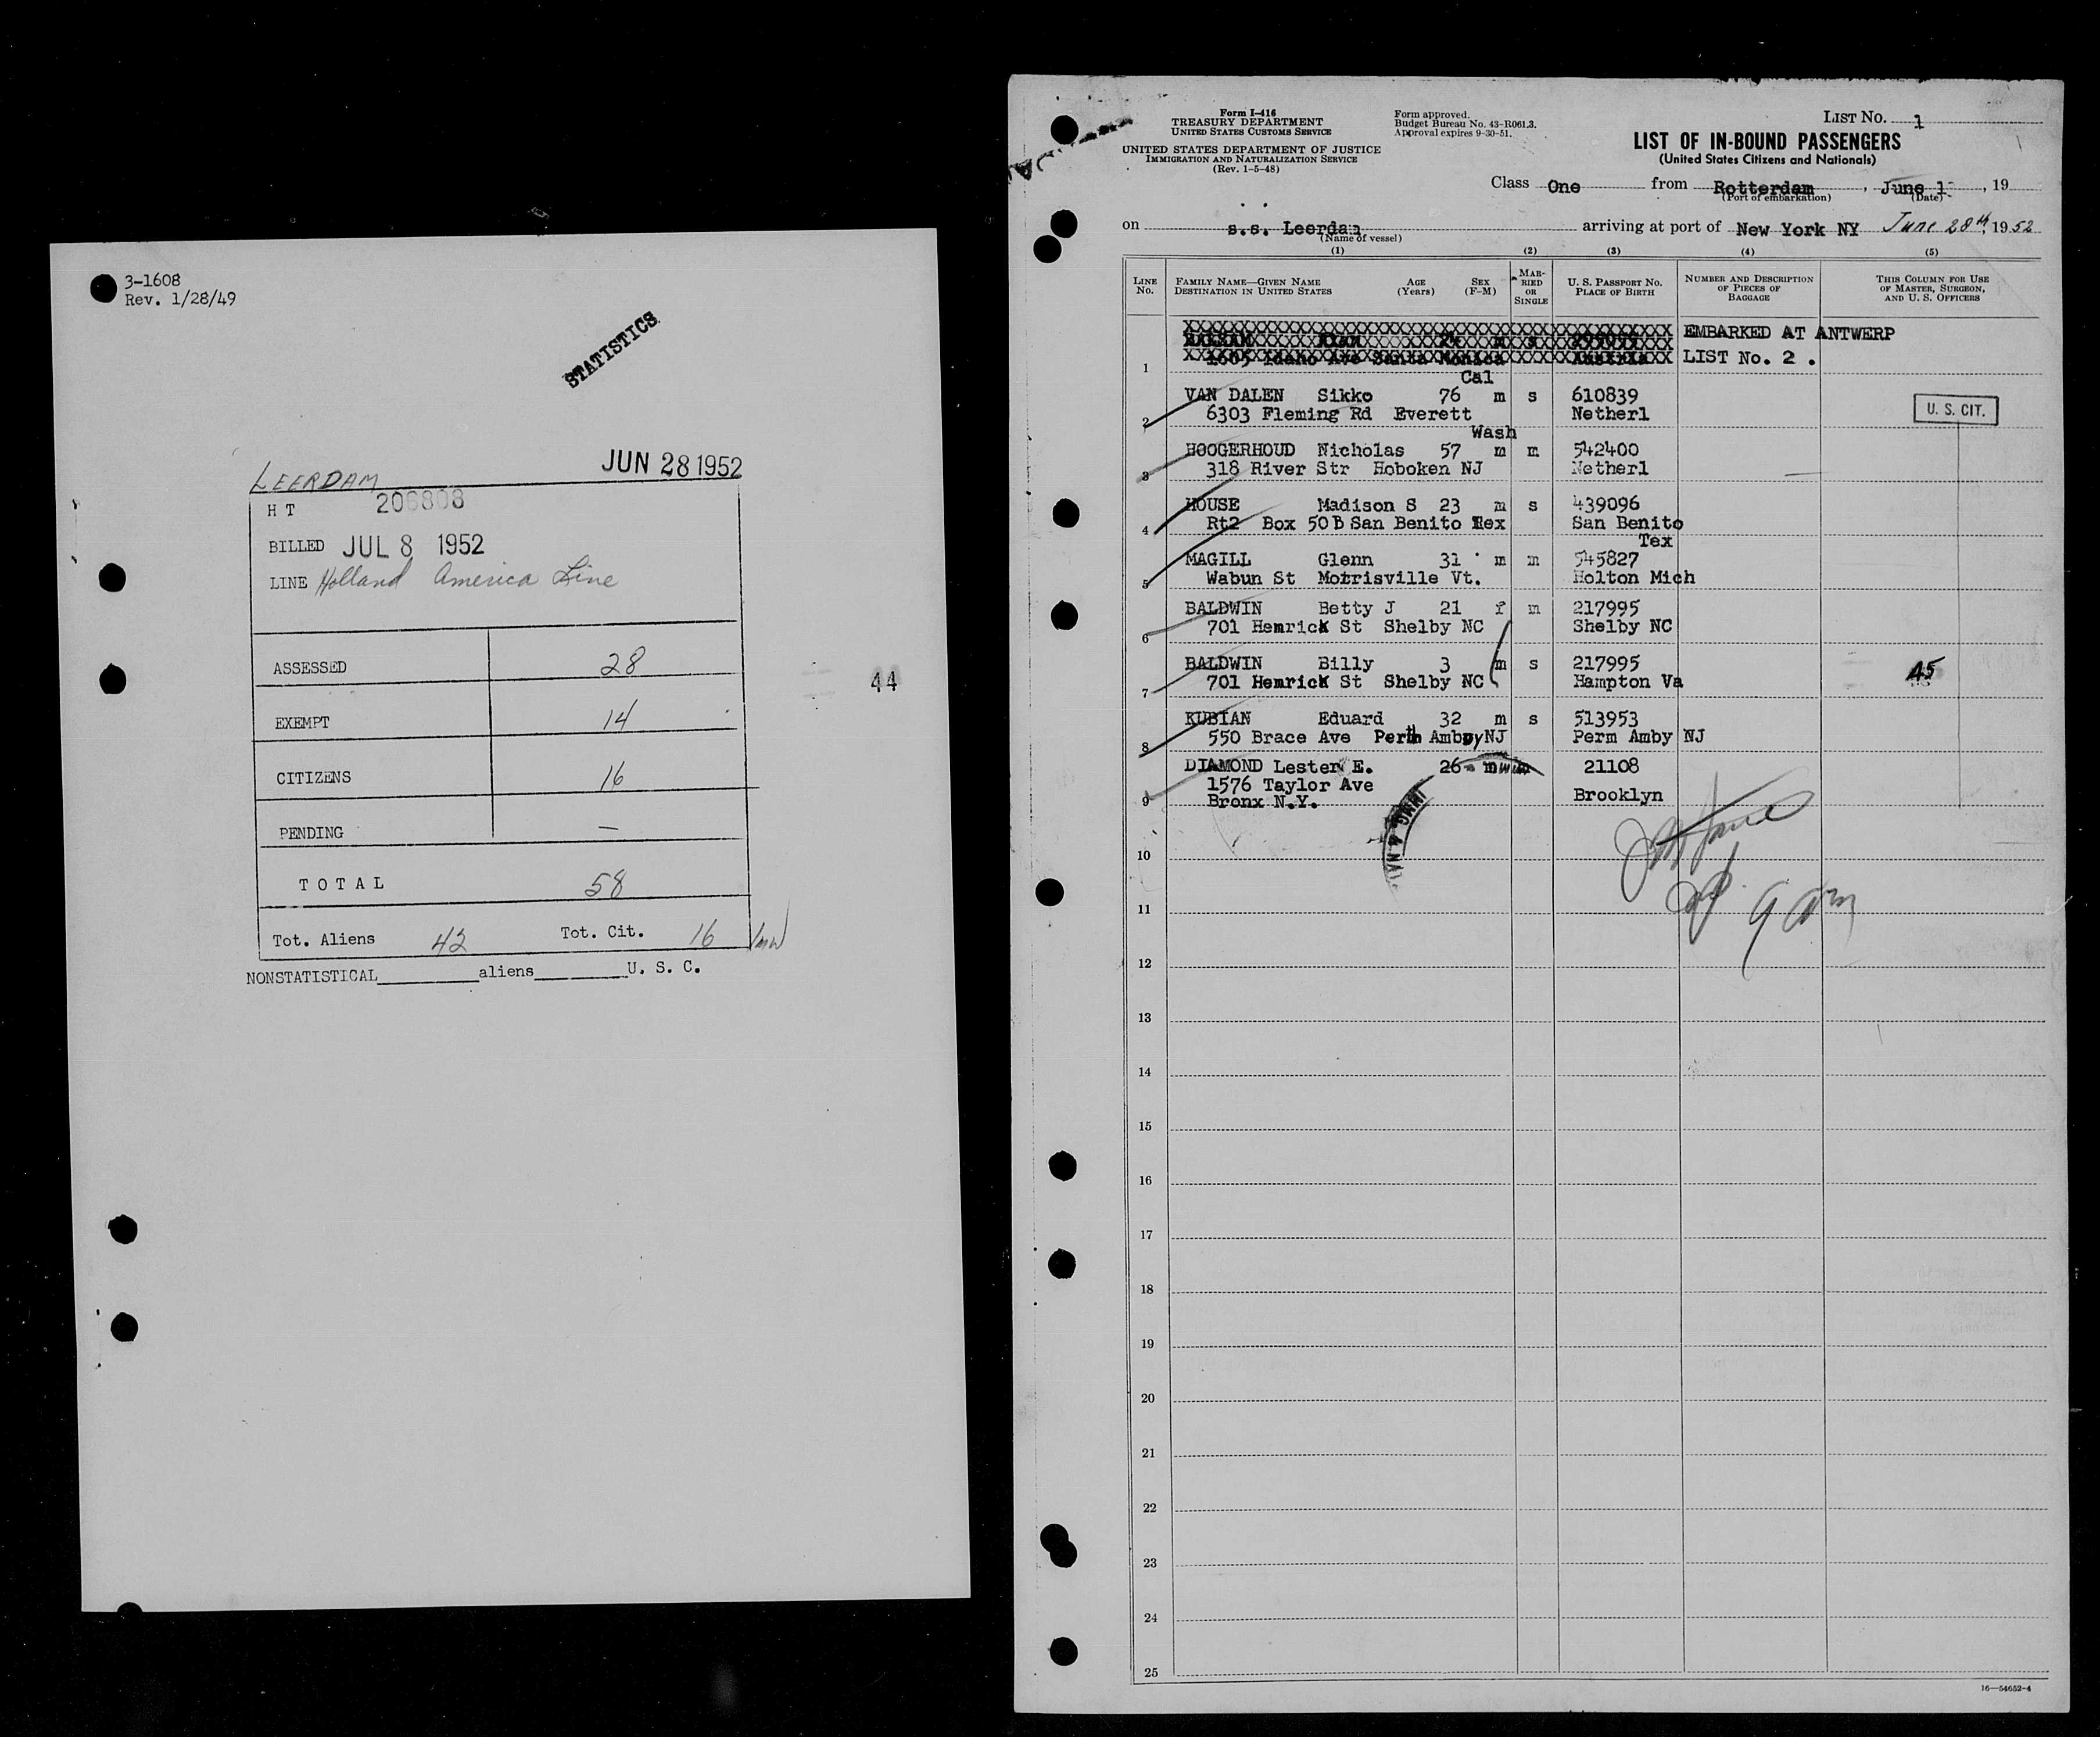 3-1608
Rev. 1/28/49
STATISTICS
LEERDAM JUN 28 1952
H T 206808
BILLED JUL 8 1952
LINE Holland America Line
ASSESSED 28
EXEMPT 14
CITIZENS 16
PENDING —
TOTAL 58
Tot. Aliens 42 Tot. Cit. 16 /mw
NONSTATISTICAL aliens U. S. C.
44
Form I-416
TREASURY DEPARTMENT
UNITED STATES CUSTOMS SERVICE
UNITED STATES DEPARTMENT OF JUSTICE
IMMIGRATION AND NATURALIZATION SERVICE
(Rev. 1-5-48)
Form approved.
Budget Bureau No. 43-R061.3.
Approval expires 9-30-51.
LIST No. 1
LIST OF IN-BOUND PASSENGERS
(United States Citizens and Nationals)
Class One from Rotterdam, June 1, 19
(Port of embarkation) (Date)
on s.s. Leerdam arriving at port of New York NY June 28th, 1952
(Name of vessel)
(1) (2) (3) (4) (5)
LINE No.
FAMILY NAME—GIVEN NAME AGE SEX
DESTINATION IN UNITED STATES (Years) (F-M)
MARRIED OR SINGLE
U. S. PASSPORT No.
PLACE OF BIRTH
NUMBER AND DESCRIPTION OF PIECES OF BAGGAGE
THIS COLUMN FOR USE OF MASTER, SURGEON, AND U. S. OFFICERS
EMBARKED AT ANTWERP
1 1605 Idaho Ave Santa Monica Austria LIST No. 2 .
Cal
VAN DALEN Sikko 76 m s 610839
2 6303 Fleming Rd Everett Netherl
Wash
U. S. CIT.
HOOGERHOUD Nicholas 57 m m 542400
3 318 River Str Hoboken NJ Netherl
HOUSE Madison S 23 m s 439096
4 Rt2 Box 50B San Benito Tex San Benito
Tex
MAGILL Glenn 31 m m 545827
5 Wabun St Morrisville Vt. Holton Mich
BALDWIN Betty J 21 f m 217995
6 701 Hemrick St Shelby NC Shelby NC
BALDWIN Billy 3 m s 217995
7 701 Hemrick St Shelby NC Hampton Va
45
KUBIAN Eduard 32 m s 513953
8 550 Brace Ave Perth Amboy NJ Perm Amby NJ
DIAMOND Lester E. 26 m 21108
9 1576 Taylor Ave Brooklyn
Bronx N.Y.
IMMG & NAT
10
11
12
13
14
15
16
17
18
19
20
21
22
23
24
25
16—54652-4